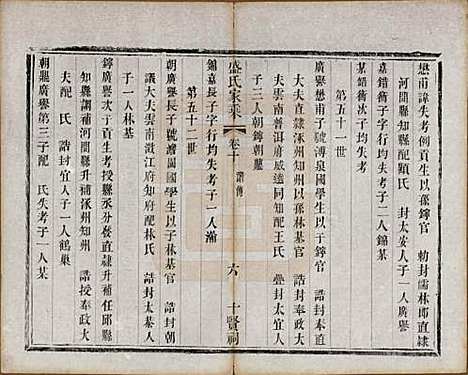 懋甫諱失考例貢生以孫鐸官　勅封儒林郎直隸
河間縣知縣配顏氏　封太安人子一人廣譽
嘉錯衡子均失考子一人錦綦
某錯衡次子均失考
第五十一世
廣譽懋甫子號溥泉國學生以子鐸官　誥封奉直
大夫直隸涿州知州以孫林基官　誥封奉政大
夫雲南普洱府威遠同知配王氏　疊封太宜人
子三人朝鐸朝鼂
盛氏家乘
卷十
譜傳
六
十賢祠
錦綦長子字行均失考子一人滿
第五十二世
朝廣譽長子號瀞園國學生以子林基官　誥封朝
議大夫雲南澂江府知府配林氏　誥封太恭人
子一人林基
鐸廣譽次子貢生考授縣丞分發直隸升補任邱縣
知縣調補河間縣升補涿州知州　誥授奉政大
夫配　氏　誥封宜人子一人鶴巢
朝鼂廣譽第三子配　氏失考子一人某